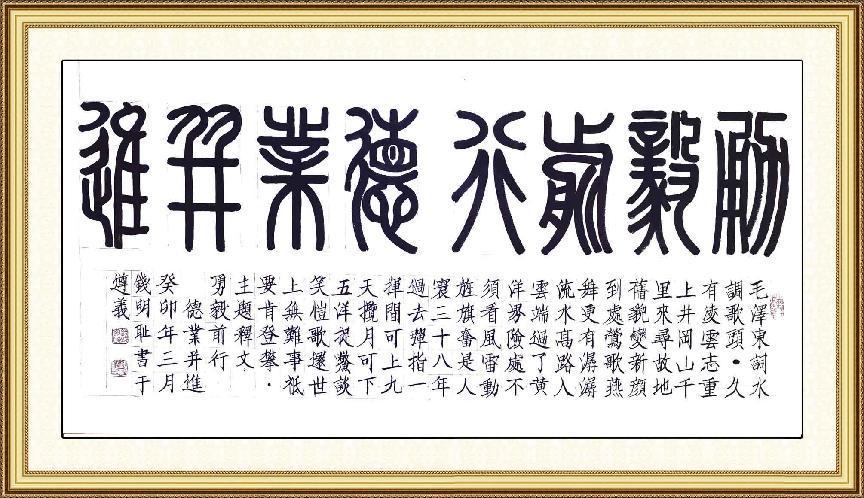 勇毅前行德業并進
毛澤東詞水
調歌頭·久
有凌雲志重
上井岡山千
里來尋故地
舊貌變新顏
到處鶯歌燕
舞更有潺潺
流水高路入
雲端過了黃
洋界險處不
須看風雷動
旌旗奮是人
寰三十八年
過去彈指一
揮間可上九
天攬月可下
五洋捉鱉談
笑愷歌還世
上無難事衹
要肯登攀·
主題釋文
勇毅前行
德業并進
癸卯年三月
錢明耻書于
遵義